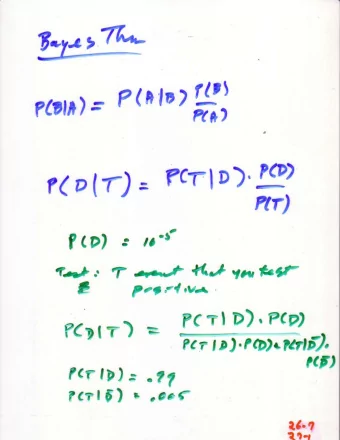 Bayes Thm
P(B|A) = P(A|B) P(B)/P(A)
P(D|T) = P(T|D) · P(D)/P(T)
P(D) = 10^-5
Test: T event that you test
positive
P(D|T) = P(T|D) · P(D)
P(T|D)·P(D)+P(T|D̄)·
P(D̄)
P(T|D) = .99
P(T|D̄) = .005